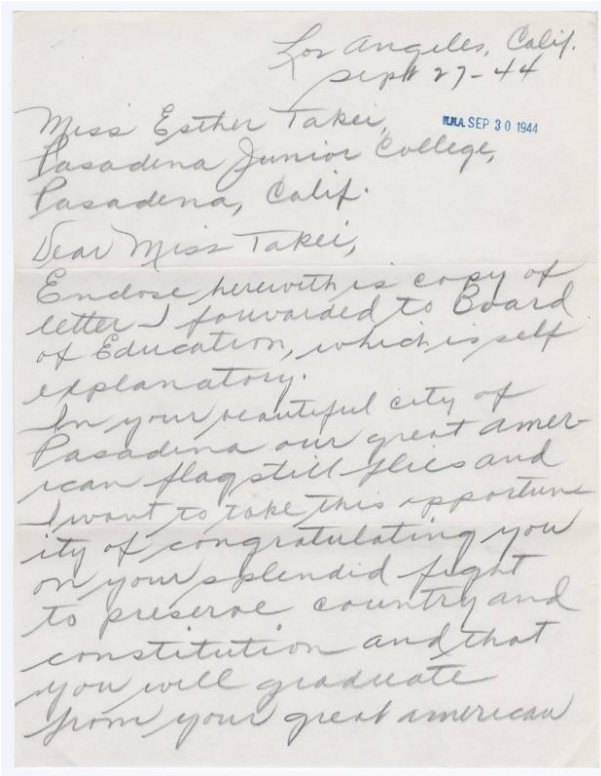 Los Angeles, Calif.
Sept 27-44
Miss Esther Takei,
W.R.A. SEP 30 1944
Pasadena Junior College,
Pasadena, Calif.
Dear Miss Takei,
Enclose herewith is copy of
letter I fouvarded to Board
of Education, which is self
explanatory.
In your beautiful city of
Pasadena our great amer-
ican flag still flies and
I want to take this opportun
ity of congratulating you
on your splendid fight
to preserve country and
constitution and that
you will graduate
from your great american